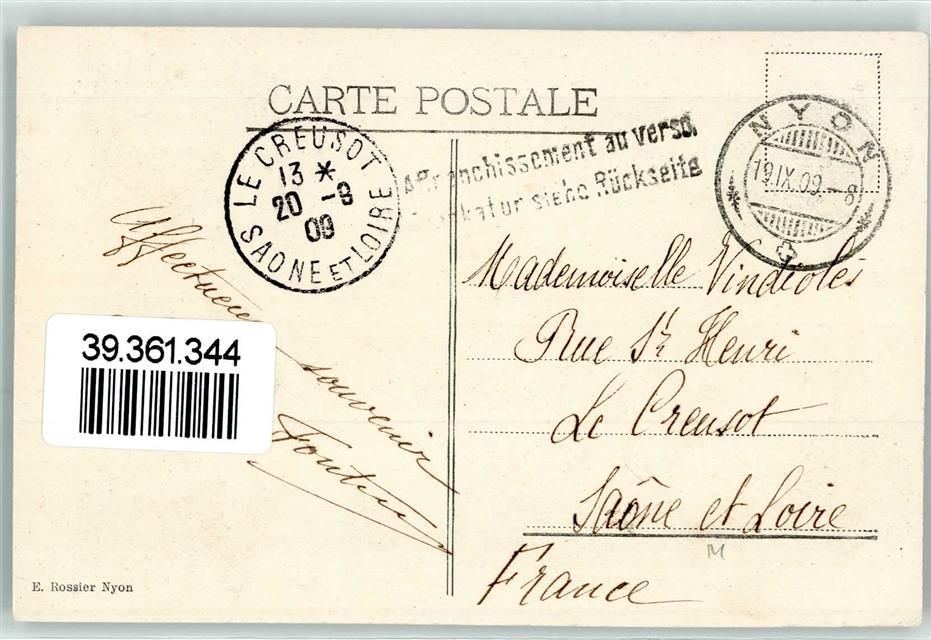 CARTE POSTALE
LE CREUSOT
13 *
20 -9
09
SAONE ET LOIRE
Affranchissement au verso.
siehe Rückseite
NYON
19.IX.09. - 8
Affectueux
souvenir
39.361.344
Mademoiselle Vindiolès
Rue St Henri
Le Creusot
Saône et Loire
France
M
E. Rossier Nyon